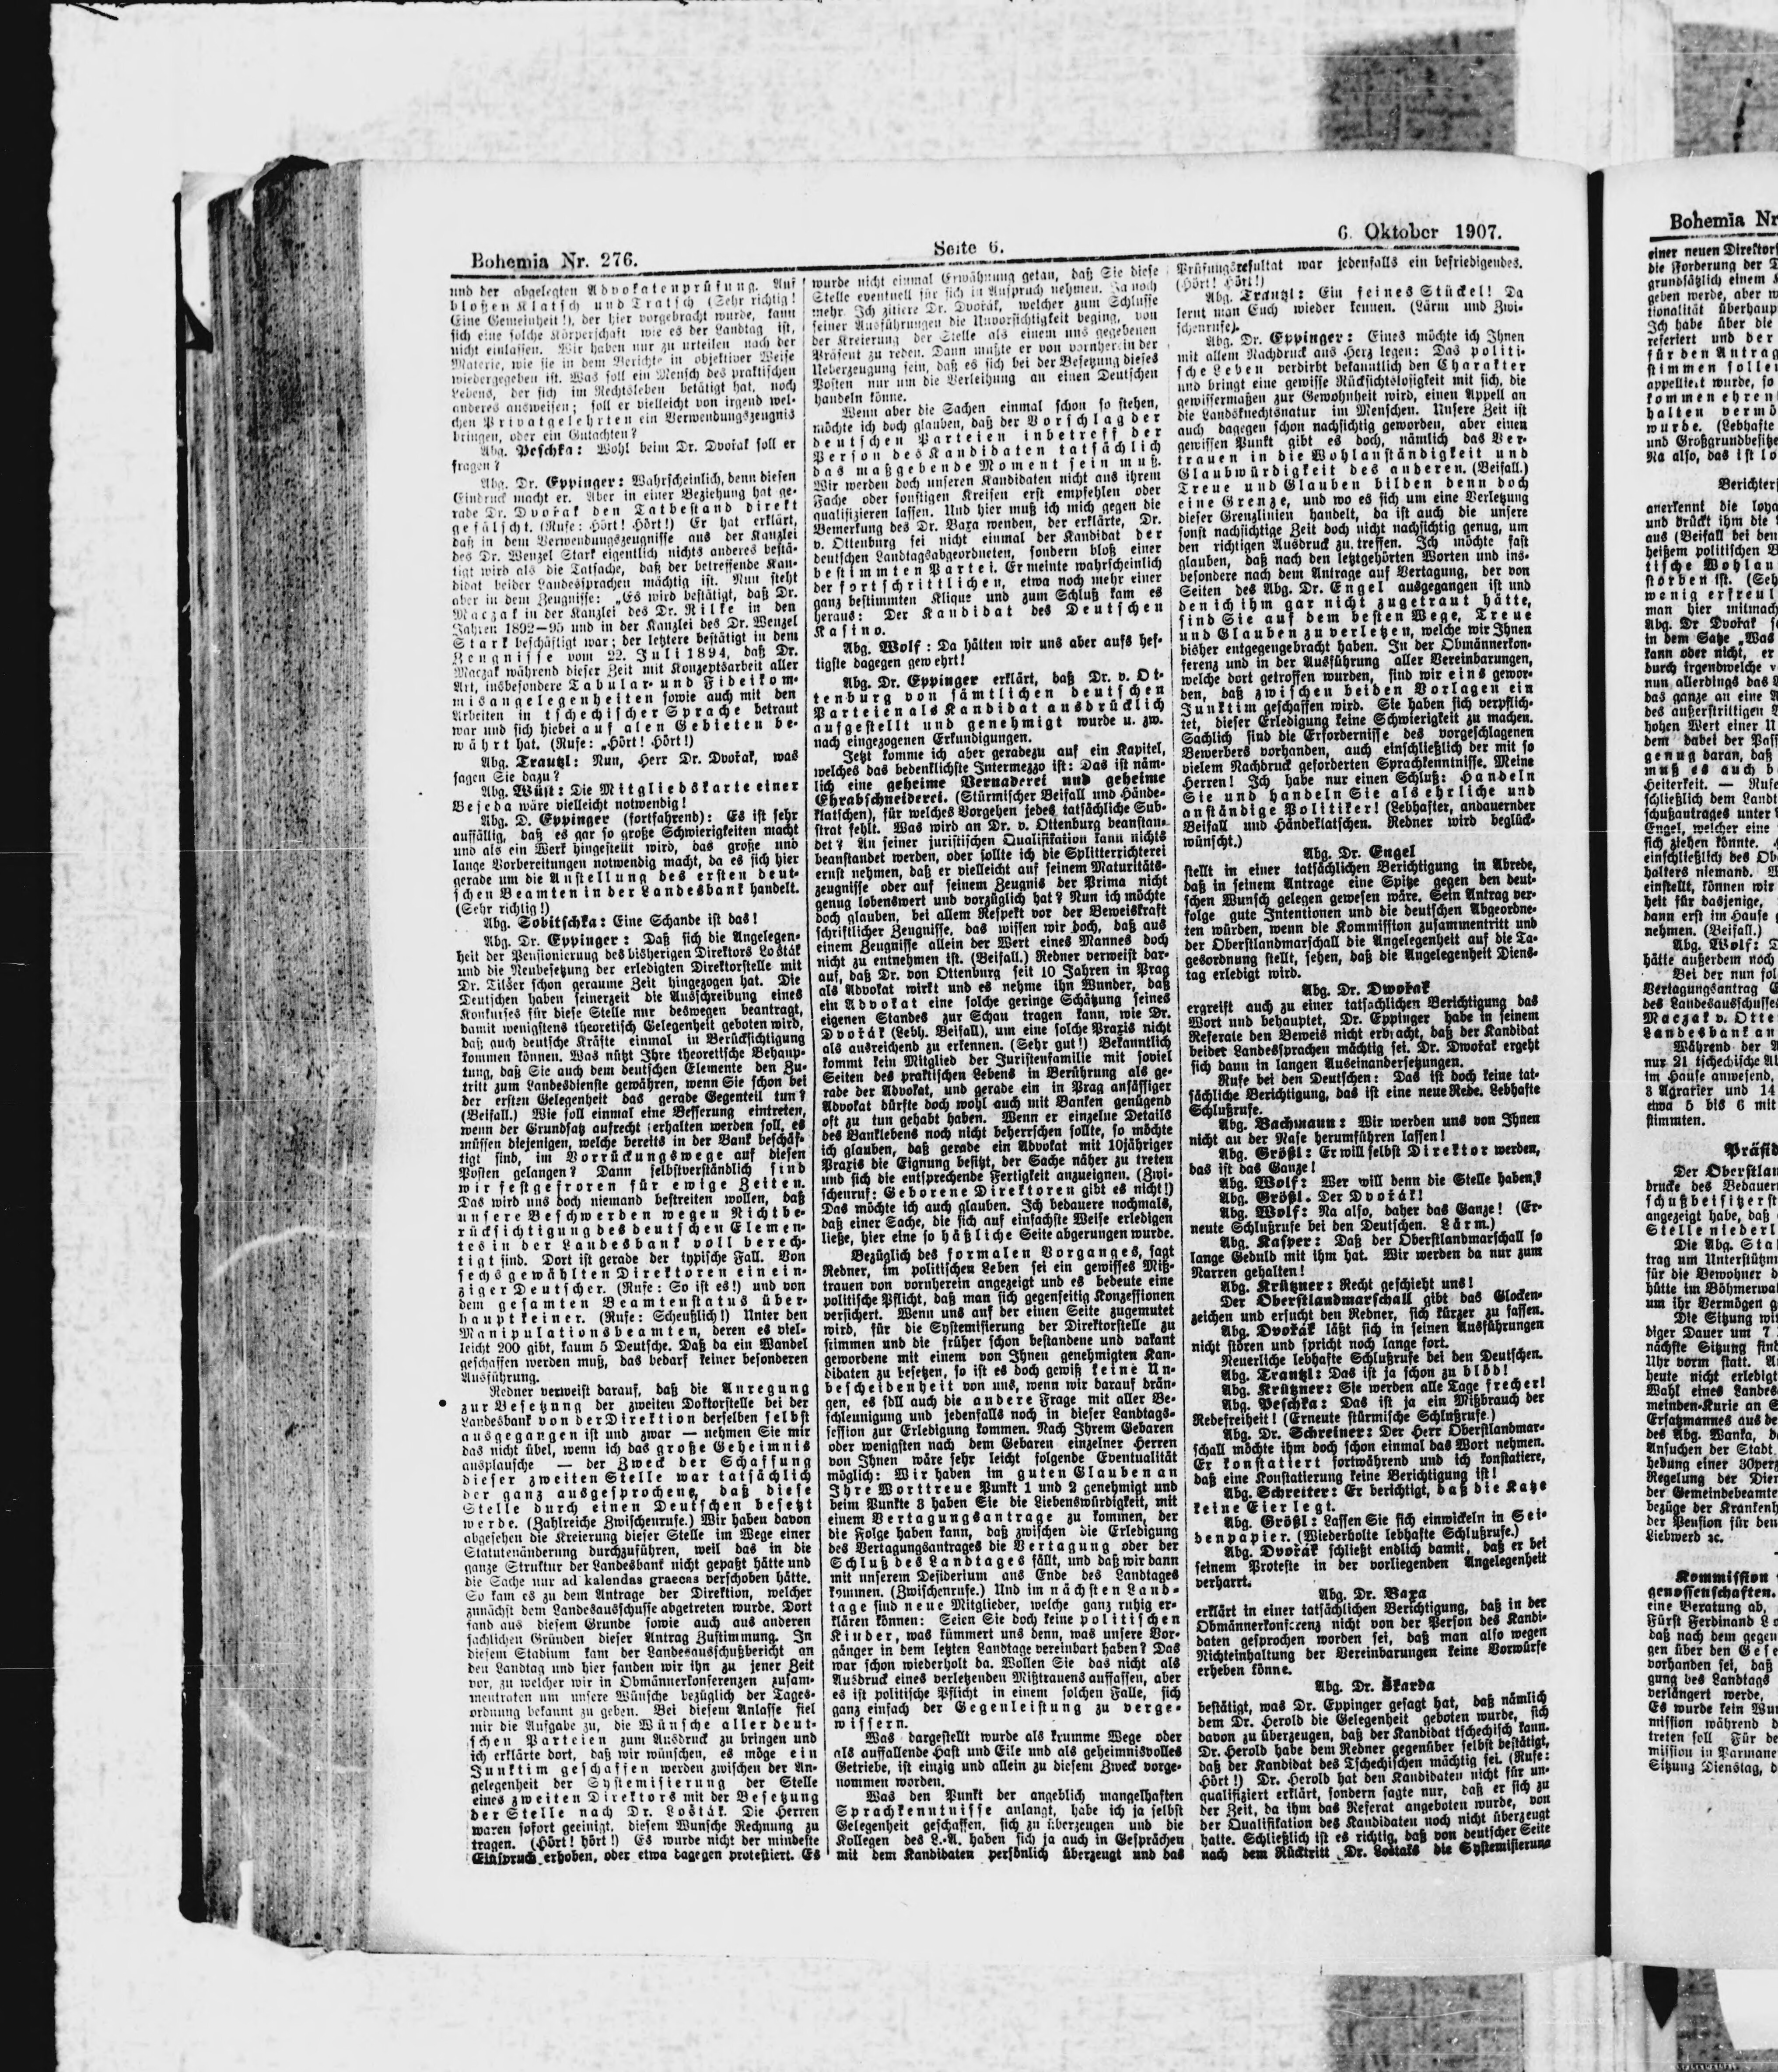 Bohemia Nr. 276.
Seite 6.
6. Oktober 1907.
und der abgelegten Advokatenprüfung. Auf
bloßen Klatsch und Tratsch (Sehr richtig!
Eine Gemeinheit!), der hier vorgebracht wurde, kann
sich eine solche Körperschaft wie es der Landtag ist,
nicht einlassen. Wir haben nur zu urteilen nach der
Materie, wie sie in dem Berichte in objektiver Weise
wiedergegeben ist. Was soll ein Mensch des praktischen
Lebens, der sich im Rechtsleben betätigt hat, noch
anderes ausweisen; soll er vielleicht von irgend wel-
chen Privatgelehrten ein Verwendungszeugnis
bringen, oder ein Gutachten?
Abg. Peschka: Wohl beim Dr. Dvořak soll er
fragen?
Abg. Dr. Eppinger: Wahrscheinlich, denn diesen
Eindruck macht er. Aber in einer Beziehung hat ge-
rade Dr. Dvořak den Tatbestand direkt
gefälscht. (Rufe: Hört! Hört!) Er hat erklärt,
daß in dem Verwendungszeugnisse aus der Kanzlei
des Dr. Wenzel Stark eigentlich nichts anderes bestä-
tigt wird als die Tatsache, daß der betreffende Kan-
didat beider Landessprachen mächtig ist. Nun steht
aber in dem Zeugnisse: „Es wird bestätigt, daß Dr.
Maczak in der Kanzlei des Dr. Rilke in den
Jahren 1892—95 und in der Kanzlei des Dr. Wenzel
Stark beschäftigt war; der letztere bestätigt in dem
Zeugnisse vom 22. Juli 1894, daß Dr.
Maczak während dieser Zeit mit Konzeptsarbeit aller
Art, insbesondere Tabular- und Fideikom-
misangelegenheiten sowie auch mit den
Arbeiten in tschechischer Sprache betraut
war und sich hiebei auf alen Gebieten be-
währt hat. (Rufe: „Hört! Hört!)
Abg. Trautzl: Nun, Herr Dr. Dvořak, was
sagen Sie dazu?
Abg. Wüst: Die Mitgliedskarte einer
Beseda wäre vielleicht notwendig!
Abg. D. Eppinger (fortfahrend): Es ist sehr
auffällig, daß es gar so große Schwierigkeiten macht
und als ein Werk hingestellt wird, das große und
lange Vorbereitungen notwendig macht, da es sich hier
gerade um die Anstellung des ersten deut-
schen Beamten in der Landesbank handelt.
(Sehr richtig!)
Abg. Sobitschka: Eine Schande ist das!
Abg. Dr. Eppinger: Daß sich die Angelegen-
heit der Pensionierung des bisherigen Direktors Lošták
und die Neubesetzung der erledigten Direktorstelle mit
Dr. Tilšer schon geraume Zeit hingezogen hat. Die
Deutschen haben seinerzeit die Ausschreibung eines
Konkurses für diese Stelle nur deswegen beantragt,
damit wenigstens theoretisch Gelegenheit geboten wird,
daß auch deutsche Kräfte einmal in Berücksichtigung
kommen können. Was nützt Ihre theoretische Behaup-
tung, daß Sie auch dem deutschen Elemente den Zu-
tritt zum Landesdienste gewähren, wenn Sie schon bei
der ersten Gelegenheit das gerade Gegenteil tun?
(Beifall.) Wie soll einmal eine Besserung eintreten,
wenn der Grundsatz aufrecht erhalten werden soll, es
müssen diejenigen, welche bereits in der Bank beschäf-
tigt sind, im Vorrückungswege auf diesen
Posten gelangen? Dann selbstverständlich sind
wir festgefroren für ewige Zeiten.
Das wird uns doch niemand bestreiten wollen, daß
unsere Beschwerden wegen Nichtbe-
rücksichtigung des deutschen Elemen-
tes in der Landesbank voll berech-
tigt sind. Dort ist gerade der typische Fall. Von
sechs gewählten Direktoren ein ein-
ziger Deutscher. (Rufe: So ist es!) und von
dem gesamten Beamtenstatus über-
haupt keiner. (Rufe: Scheußlich!) Unter den
Manipulationsbeamten, deren es viel-
leicht 200 gibt, kaum 5 Deutsche. Daß da ein Wandel
geschaffen werden muß, das bedarf keiner besonderen
Ausführung.
Redner verweist darauf, daß die Anregung
zur Besetzung der zweiten Doktorstelle bei der
Landesbank von der Direktion derselben selbst
ausgegangen ist und zwar — nehmen Sie mir
das nicht übel, wenn ich das große Geheimnis
ausplausche — der Zweck der Schaffung
dieser zweiten Stelle war tatsächlich
der ganz ausgesprochene, daß diese
Stelle durch einen Deutschen besetzt
werde. (Zahlreiche Zwischenrufe.) Wir haben davon
abgesehen die Kreierung dieser Stelle im Wege einer
Statutenänderung durchzuführen, weil das in die
ganze Struktur der Landesbank nicht gepaßt hätte und
die Sache nur ad kalendas graecas verschoben hätte.
So kam es zu dem Antrage der Direktion, welcher
zunächst dem Landesausschusse abgetreten wurde. Dort
fand aus diesem Grunde sowie auch aus anderen
sachlichen Gründen dieser Antrag Zustimmung. In
diesem Stadium kam der Landesausschußbericht an
den Landtag und hier fanden wir ihn zu jener Zeit
vor, zu welcher wir in Obmännerkonferenzen zusam-
mentraten um unsere Wünsche bezüglich der Tages-
ordnung bekannt zu geben. Bei diesem Anlasse fiel
mir die Aufgabe zu, die Wünsche aller deut-
schen Parteien zum Ausdruck zu bringen und
ich erklärte dort, daß wir wünschen, es möge ein
Junktim geschaffen werden zwischen der An-
gelegenheit der Systemisierung der Stelle
eines zweiten Direktors mit der Besetzung
der Stelle nach Dr. Lošták. Die Herren
waren sofort geeinigt, diesem Wunsche Rechnung zu
tragen. (Hört! hört!) Es wurde nicht der mindeste
Einspruch erhoben, oder etwa dagegen protestiert. Es
wurde nicht einmal Erwähnung getan, daß Sie diese
Stelle eventuell für sich in Anspruch nehmen. Ja noch
mehr. Ich zitiere Dr. Dvořák, welcher zum Schlusse
seiner Ausführungen die Unvorsichtigkeit beging, von
der Kreierung der Stelle als einem uns gegebenen
Präsent zu reden. Dann mußte er von vornherein der
Ueberzeugung sein, daß es sich bei der Besetzung dieses
Posten nur um die Verleihung an einen Deutschen
handeln könne.
Wenn aber die Sachen einmal schon so stehen,
möchte ich doch glauben, daß der Vorschlag der
deutschen Parteien inbetreff der
Person des Kandidaten tatsächlich
das maßgebende Moment sein muß.
Wir werden doch unseren Kandidaten nicht aus ihrem
Fache oder sonstigen Kreisen erst empfehlen oder
qualifizieren lassen. Und hier muß ich mich gegen die
Bemerkung des Dr. Baxa wenden, der erklärte, Dr.
v. Ottenburg sei nicht einmal der Kandidat der
deutschen Landtagsabgeordneten, sondern bloß einer
bestimmten Partei. Er meinte wahrscheinlich
der fortschrittlichen, etwa noch mehr einer
ganz bestimmten Klique und zum Schluß kam es
heraus: Der Kandidat des Deutschen
Kasino.
Abg. Wolf: Da hätten wir uns aber aufs hef-
tigste dagegen gewehrt!
Abg. Dr. Eppinger erklärt, daß Dr. v. Ot-
tenburg von sämtlichen deutschen
Parteien als Kandidat ausdrücklich
aufgestellt und genehmigt wurde u. zw.
nach eingezogenen Erkundigungen.
Jetzt komme ich aber geradezu auf ein Kapitel,
welches das bedenklichste Intermezzo ist: Das ist näm-
lich eine geheime Vernaderei und geheime
Ehrabschneiderei. (Stürmischer Beifall und Hände-
klatschen), für welches Vorgehen jedes tatsächliche Sub-
strat fehlt. Was wird an Dr. v. Ottenburg beanstan-
det? An seiner juristischen Qualifikation kann nichts
beanstandet werden, oder sollte ich die Splitterrichterei
ernst nehmen, daß er vielleicht auf seinem Maturitäts-
zeugnisse oder auf seinem Zeugnis der Prima nicht
genug lobenswert und vorzüglich hat? Nun ich möchte
doch glauben, bei allem Respekt vor der Beweiskraft
schriftlicher Zeugnisse, das wissen wir doch, daß aus
einem Zeugnisse allein der Wert eines Mannes doch
nicht zu entnehmen ist. (Beifall.) Redner verweist dar-
auf, daß Dr. von Ottenburg seit 10 Jahren in Prag
als Advokat wirkt und es nehme ihn Wunder, daß
ein Advokat eine solche geringe Schätzung seines
eigenen Standes zur Schau tragen kann, wie Dr.
Dvořák (Lebh. Beifall), um eine solche Praxis nicht
als ausreichend zu erkennen. (Sehr gut!) Bekanntlich
kommt kein Mitglied der Juristenfamilie mit soviel
Seiten des praktischen Lebens in Berührung als ge-
rade der Advokat, und gerade ein in Prag ansässiger
Advokat dürfte doch wohl auch mit Banken genügend
oft zu tun gehabt haben. Wenn er einzelne Details
des Banklebens noch nicht beherrschen sollte, so möchte
ich glauben, daß gerade ein Advokat mit 10jähriger
Praxis die Eignung besitzt, der Sache näher zu treten
und sich die entsprechende Fertigkeit anzueignen. (Zwi-
schenruf: Geborene Direktoren gibt es nicht!)
Das möchte ich auch glauben. Ich bedauere nochmals,
daß einer Sache, die sich auf einfachste Weise erledigen
ließe, hier eine so häßliche Seite abgerungen wurde.
Bezüglich des formalen Vorganges, sagt
Redner, im politischen Leben sei ein gewisses Miß-
trauen von vornherein angezeigt und es bedeute eine
politische Pflicht, daß man sich gegenseitig Konzessionen
versichert. Wenn uns auf der einen Seite zugemutet
wird, für die Systemisierung der Direktorstelle zu
stimmen und die früher schon bestandene und vakant
gewordene mit einem von Ihnen genehmigten Kan-
didaten zu besetzen, so ist es doch gewiß keine Un-
bescheidenheit von uns, wenn wir darauf drän-
gen, es soll auch die andere Frage mit aller Be-
schleunigung und jedenfalls noch in dieser Landtags-
session zur Erledigung kommen. Nach Ihrem Gebaren
oder wenigsten nach dem Gebaren einzelner Herren
von Ihnen wäre sehr leicht folgende Eventualität
möglich: Wir haben im guten Glauben an
Ihre Worttreue Punkt 1 und 2 genehmigt und
beim Punkte 3 haben Sie die Liebenswürdigkeit, mit
einem Vertagungsantrage zu kommen, der
die Folge haben kann, daß zwischen die Erledigung
des Vertagungsantrages die Vertagung oder der
Schluß des Landtages fällt, und daß wir dann
mit unserem Desiderium ans Ende des Landtages
kommen. (Zwischenrufe.) Und im nächsten Land-
tage sind neue Mitglieder, welche ganz ruhig er-
klären können: Seien Sie doch keine politischen
Kinder, was kümmert uns denn, was unsere Vor-
gänger in dem letzten Landtage vereinbart haben? Das
war schon wiederholt da. Wollen Sie das nicht als
Ausdruck eines verletzenden Mißtrauens auffassen, aber
es ist politische Pflicht in einem solchen Falle, sich
ganz einfach der Gegenleistung zu verge-
wissern.
Was dargestellt wurde als krumme Wege oder
als auffallende Hast und Eile und als geheimnisvolles
Getriebe, ist einzig und allein zu diesem Zweck vorge-
nommen worden.
Was den Punkt der angeblich mangelhaften
Sprachkenntnisse anlangt, habe ich ja selbst
Gelegenheit geschaffen, sich zu überzeugen und die
Kollegen des L.-A. haben sich ja auch in Gesprächen
mit dem Kandidaten persönlich überzeugt und das
Prüfungsresultat war jedenfalls ein befriedigendes.
(Hört! Hört!)
Abg. Trautzl: Ein feines Stückel! Da
lernt man Euch wieder kennen. (Lärm und Zwi-
schenrufe).
Abg. Dr. Eppinger: Eines möchte ich Ihnen
mit allem Nachdruck ans Herz legen: Das politi-
sche Leben verdirbt bekanntlich den Charakter
und bringt eine gewisse Rücksichtslosigkeit mit sich, die
gewissermaßen zur Gewohnheit wird, einen Appell an
die Landsknechtsnatur im Menschen. Unsere Zeit ist
auch dagegen schon nachsichtig geworden, aber einen
gewissen Punkt gibt es doch, nämlich das Ver-
trauen in die Wohlanständigkeit und
Glaubwürdigkeit des anderen. (Beifall.)
Treue und Glauben bilden denn doch
eine Grenze, und wo es sich um eine Verletzung
dieser Grenzlinien handelt, da ist auch die unsere
sonst nachsichtige Zeit doch nicht nachsichtig genug, um
den richtigen Ausdruck zu treffen. Ich möchte fast
glauben, daß nach den letztgehörten Worten und ins-
besondere nach dem Antrage auf Vertagung, der von
Seiten des Abg. Dr. Engel ausgegangen ist und
den ich ihm gar nicht zugetraut hätte,
sind Sie auf dem besten Wege, Treue
und Glauben zu verletzen, welche wir Ihnen
bisher entgegengebracht haben. In der Obmännerkon-
ferenz und in der Ausführung aller Vereinbarungen,
welche dort getroffen wurden, sind wir eins gewor-
den, daß zwischen beiden Vorlagen ein
Junktim geschaffen wird. Sie haben sich verpflich-
tet, dieser Erledigung keine Schwierigkeit zu machen.
Sachlich sind die Erfordernisse des vorgeschlagenen
Bewerbers vorhanden, auch einschließlich der mit so
vielem Nachdruck geforderten Sprachkenntnisse. Meine
Herren! Ich habe nur einen Schluß: Handeln
Sie und handeln Sie als ehrliche und
anständige Politiker! (Lebhafter, andauernder
Beifall und Händeklatschen. Redner wird beglück-
wünscht.)
Abg. Dr. Engel
stellt in einer tatsächlichen Berichtigung in Abrede,
daß in seinem Antrage eine Spitze gegen den deut-
schen Wunsch gelegen gewesen wäre. Sein Antrag ver-
folge gute Intentionen und die deutschen Abgeordne-
ten würden, wenn die Kommission zusammentritt und
der Oberstlandmarschall die Angelegenheit auf die Ta-
gesordnung stellt, sehen, daß die Angelegenheit Diens-
tag erledigt wird.
Abg. Dr. Dwořak
ergreift auch zu einer tatsächlichen Berichtigung das
Wort und behauptet, Dr. Eppinger habe in seinem
Referate den Beweis nicht erbracht, daß der Kandidat
beider Landessprachen mächtig sei. Dr. Dwořak ergeht
sich dann in langen Auseinandersetzungen.
Rufe bei den Deutschen: Das ist doch keine tat-
sächliche Berichtigung, das ist eine neue Rede. Lebhafte
Schlußrufe.
Abg. Bachmann: Wir werden uns von Ihnen
nicht an der Nase herumführen lassen!
Abg. Größl: Er will selbst Direktor werden,
das ist das Ganze!
Abg. Wolf: Wer will denn die Stelle haben?
Abg. Größl. Der Dvořák!
Abg. Wolf: Na also, daher das Ganze! (Er-
neute Schlußrufe bei den Deutschen. Lärm.)
Abg. Kasper: Daß der Oberstlandmarschall so
lange Geduld mit ihm hat. Wir werden da nur zum
Narren gehalten!
Abg. Krützner: Recht geschieht uns!
Der Oberstlandmarschall gibt das Glocken-
zeichen und ersucht den Redner, sich kürzer zu fassen.
Abg. Dvořák läßt sich in seinen Ausführungen
nicht stören und spricht noch lange fort.
Neuerliche lebhafte Schlußrufe bei den Deutschen.
Abg. Trautzl: Das ist ja schon zu blöd!
Abg. Krützner: Sie werden alle Tage frecher!
Abg. Peschka: Das ist ja ein Mißbrauch der
Redefreiheit! (Erneute stürmische Schlußrufe.)
Abg. Dr. Schreiner: Der Herr Oberstlandmar-
schall möchte ihm doch schon einmal das Wort nehmen.
Er konstatiert fortwährend und ich konstatiere,
daß eine Konstatierung keine Berichtigung ist!
Abg. Schreiter: Er berichtigt, daß die Katze
keine Eier legt.
Abg. Größl: Lassen Sie sich einwickeln in Sei-
denpapier. (Wiederholte lebhafte Schlußrufe.)
Abg. Dvořák schließt endlich damit, daß er bei
seinem Proteste in der vorliegenden Angelegenheit
verharrt.
Abg. Dr. Baxa
erklärt in einer tatsächlichen Berichtigung, daß in der
Obmännerkonferenz nicht von der Person des Kandi-
daten gesprochen worden sei, daß man also wegen
Nichteinhaltung der Vereinbarungen keine Vorwürfe
erheben könne.
Abg. Dr. Škarda
bestätigt, was Dr. Eppinger gesagt hat, daß nämlich
dem Dr. Herold die Gelegenheit geboten wurde, sich
davon zu überzeugen, daß der Kandidat tschechisch kann.
Dr. Herold habe dem Redner gegenüber selbst bestätigt,
daß der Kandidat des Tschechischen mächtig sei. (Rufe:
Hört!) Dr. Herold hat den Kandidaten nicht für un-
qualifiziert erklärt, sondern sagte nur, daß er sich zu
der Zeit, da ihm das Referat angeboten wurde, von
der Qualifikation des Kandidaten noch nicht überzeugt
hatte. Schließlich ist es richtig, daß von deutscher Seite
nach dem Rücktritt Dr. Lostaks die Systemisierung
Bohemia Nr
einer neuen Direktor
die Forderung der T
grundsätzlich einem
geben werde, aber w
tionalität überhaup
Ich habe über die
referiert und der
für den Antrag
stimmen sollen
appelliert wurde, so
kommen ehren
halten vermö
wurde. (Lebhafte
und Großgrundbesitze
Na also, das ist lo
Berichters
anerkennt die loya
und drückt ihm die
aus (Beifall bei den
heißem politischen B
tische Wohlan
storben ist. (Seh
wenig erfreul
man hier mitmach
Abg. Dr Dvořak s
in dem Satze „Was
kann oder nicht, er
durch irgendwelche v
nun allerdings das
das ganze an eine A
des außerstrittigen
hohen Wert einer U
dem dabei der Pass
genug daran, daß
muß es auch b
Heiterkeit. — Rufe
schließlich dem Landt
schußantrages unter
Engel, welcher eine
sich ziehen könnte.
einschließlich des Ob
halters niemand. W
einstellt, können wir
heit für dasjenige,
dann erst im Hause
nehmen. (Beifall.)
Abg. Wolf: D
hätte außerdem noch
Bei der nun fol
Vertagungsantrag E
des Landesausschusse
Maczak v. Otte
Landesbank an
Während der A
nur 21 tschechische Al
im Hause anwesend,
8 Agrarier und 14
etwa 5 bis 6 mit
stimmten.
Präsid
Der Oberstlan
drucke des Bedauer
schußbeisitzerst
angezeigt habe, daß
Stelle niederl
Die Abg. Sta
trag um Unterstützun
für die Bewohner d
hütte im Böhmerwal
um ihr Vermögen g
Die Sitzung wir
diger Dauer um 7
nächste Sitzung find
Uhr vorm statt. A
heute nicht erledigt
Wahl eines Landes
meinden-Kurie an S
Ersatzmannes aus de
des Abg. Wanka, d
Ansuchen der Stadt
hebung einer 30perz
Regelung der Dien
der Gemeindebeamte
bezüge der Krankenh
der Pension für den
Liebwerd ꝛc.
Kommission
genossenschaften.
eine Beratung ab,
Fürst Ferdinand Lo
daß nach dem gegen
gen über den Gese
vorhanden sei, daß
gung des Landtags
verlängert werde,
Es wurde kein Wun
mission während d
treten soll Für de
mission in Parmane
Sitzung Dienstag, d